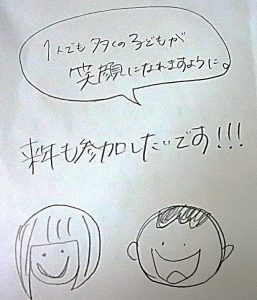 1人でも多くの子どもが
笑顔になれますように。
来年も参加したいです!!!